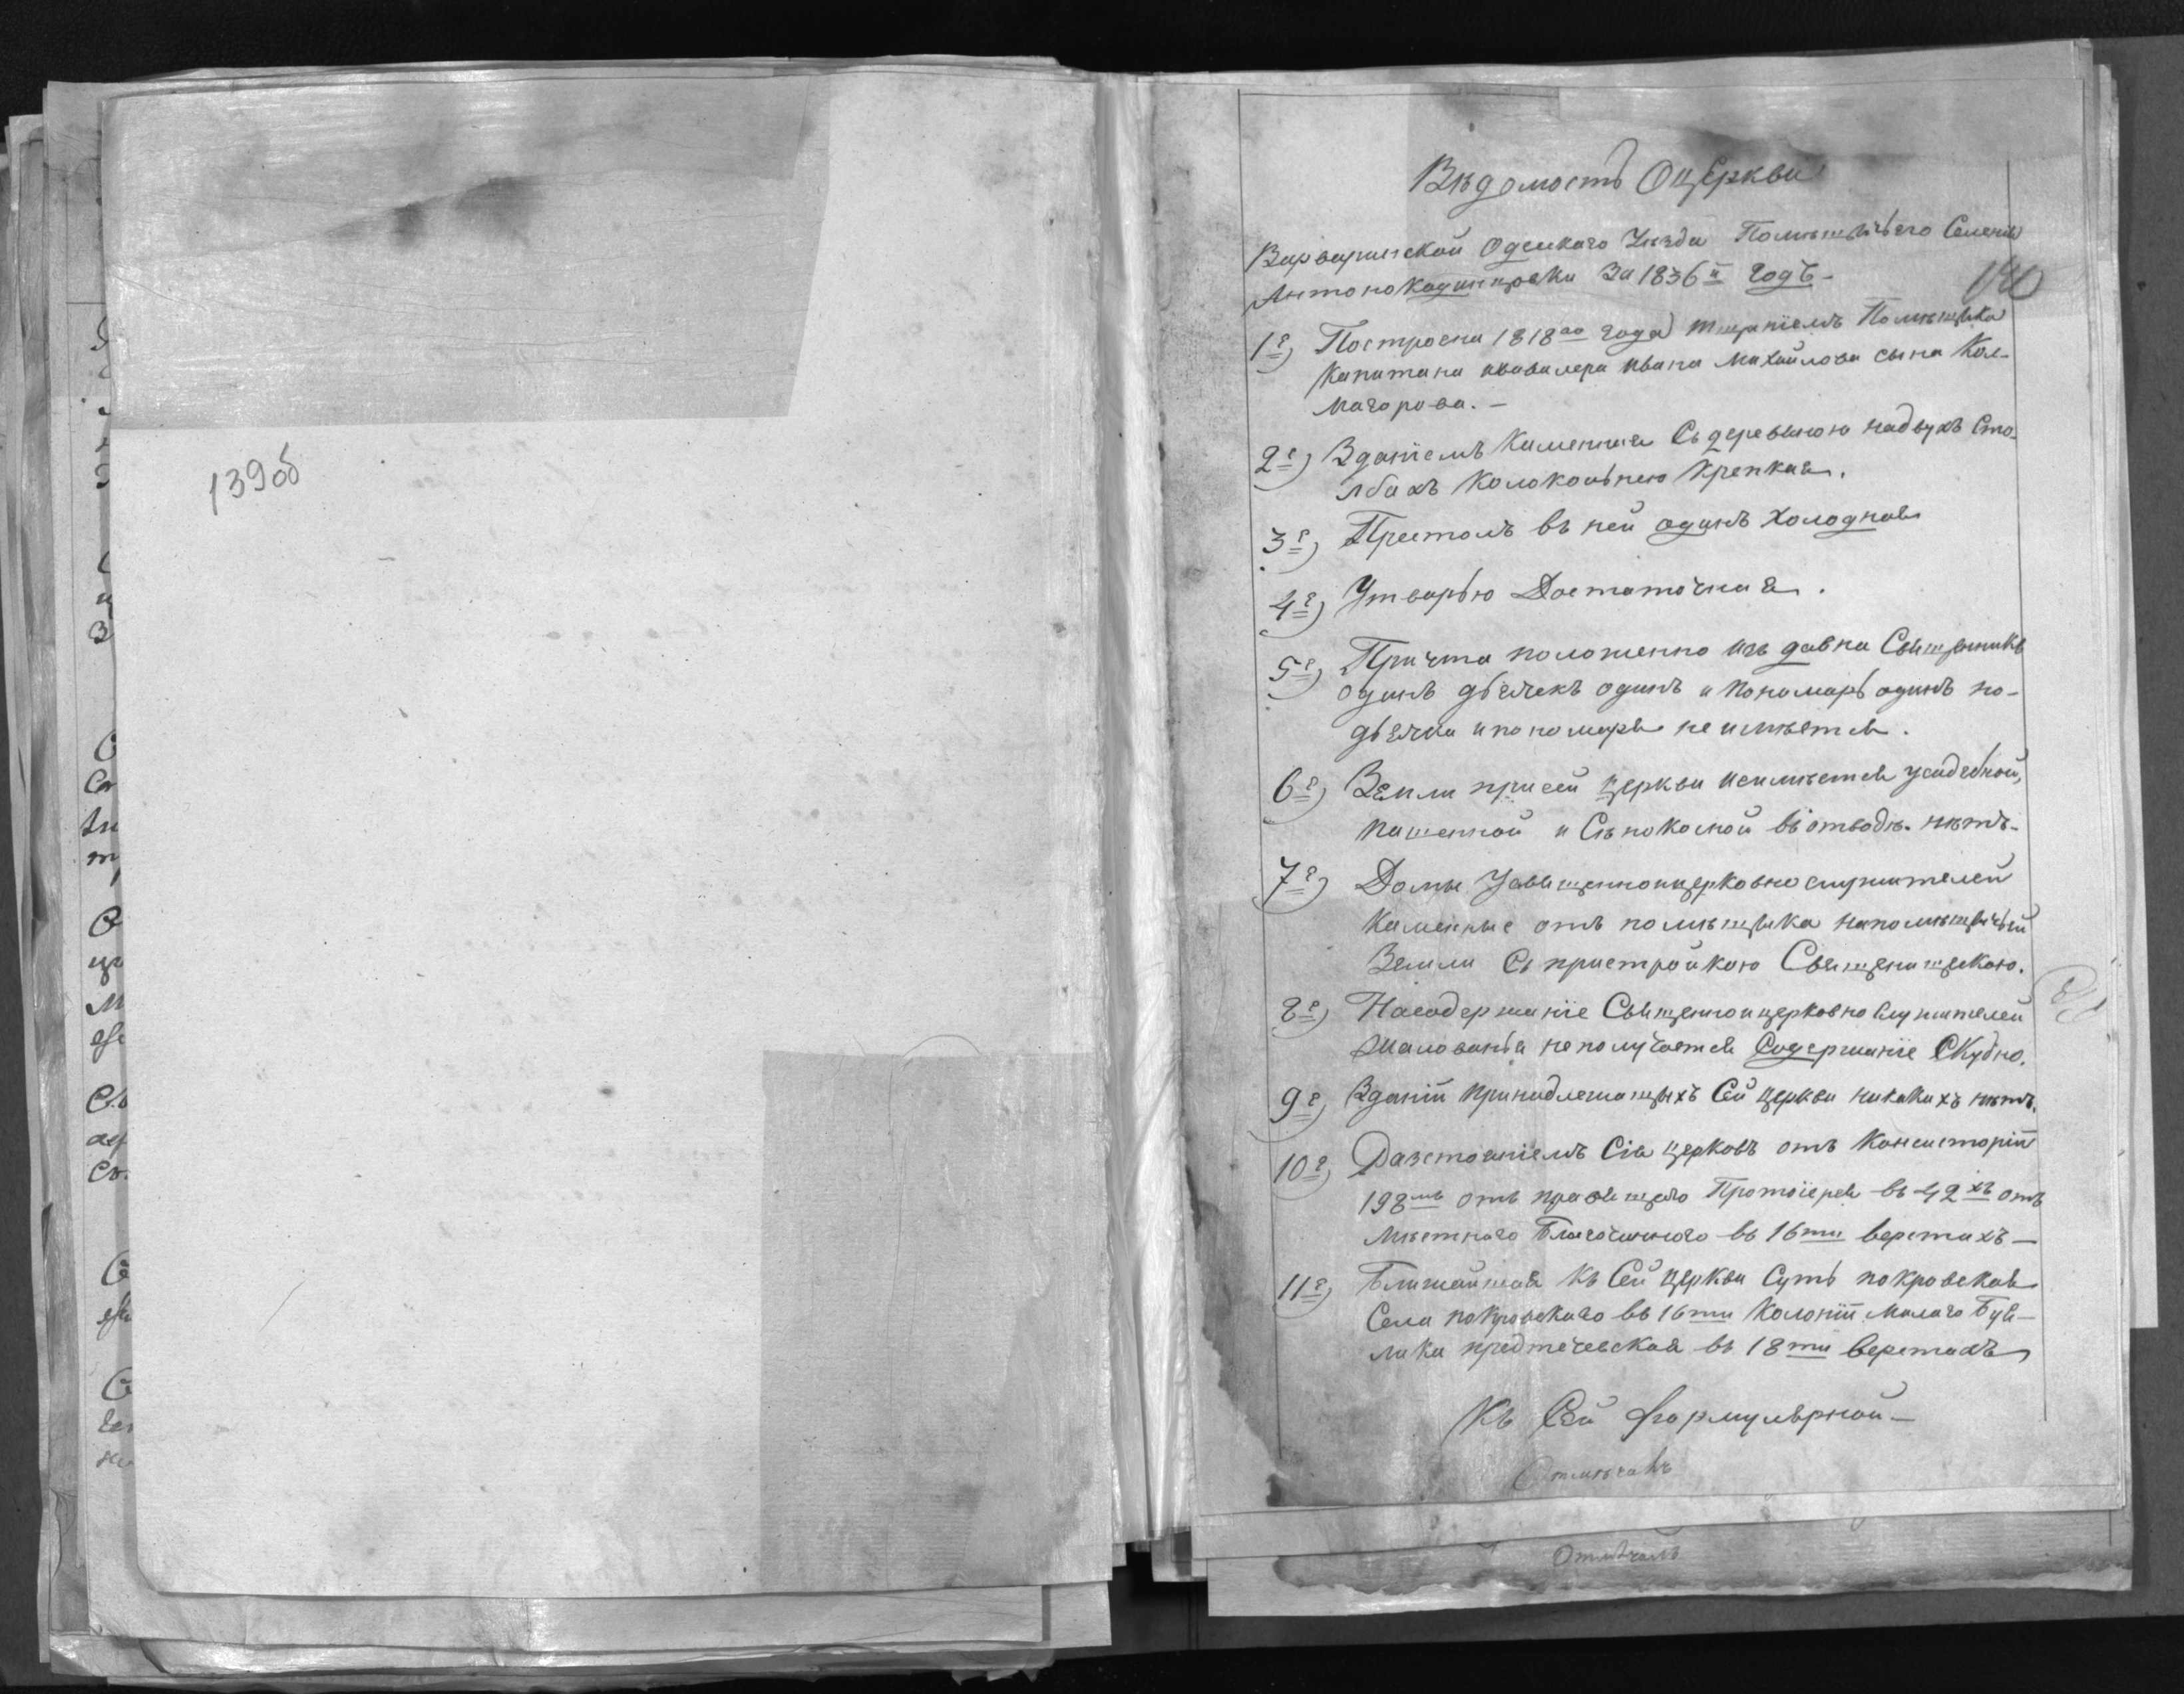 139об
Вѣдомость О церкви
Варваринской Одескаго Уѣзда Помѣщичьего Селенія
Антонокодинцовки За 1836й годъ -
140
1е) Построена 1818го года тщаніемъ Помѣщика
Капитана икавалера Ивана Михайлова сына Кол-
магорова. -
2е) Зданіемъ Каменная Съ деревяною надвухъ Сто-
лбахъ Колокольнею Крепкая.
3е) Престолъ въ ней одинъ холодная
4е) Утварью Достаточная.
5е) Причта положенно изъ давна Священникъ
одинъ дьячекъ одинъ и пономарь одинъ но-
дьячка и пономаря не имѣется.
6е) Земли при сей церкви неимѣется усадебной,
пашенной и Сѣнокосной въ отводѣ нѣтъ.
7е) Домы Усвященноицерковнослужителей
Каменные отъ помѣщика напомѣщичьей
Земли Съ пристройкою Священищескою.
8е) Насодержаніе Священноицерковно служителей
Жалованья неполучается Содержаніе Скудно.
9е) Зданій принадлежащихъ Сей церкви никакихъ нѣтъ.
10е) Разстояніемъ Сія церковь отъ Консисторіи
198мь отъ правящего Протоіерея въ 42хъ отъ
Мѣстнаго Благочиннаго въ 16ти верстахъ —
11е) Ближайшая Къ Сей церкви Суть покровская
Села покровскаго въ 16ти Колоніи Малаго Буя-
лыка предтечевская въ 18ти верстахъ
Къ Сей формулярной —
Отмѣчалъ